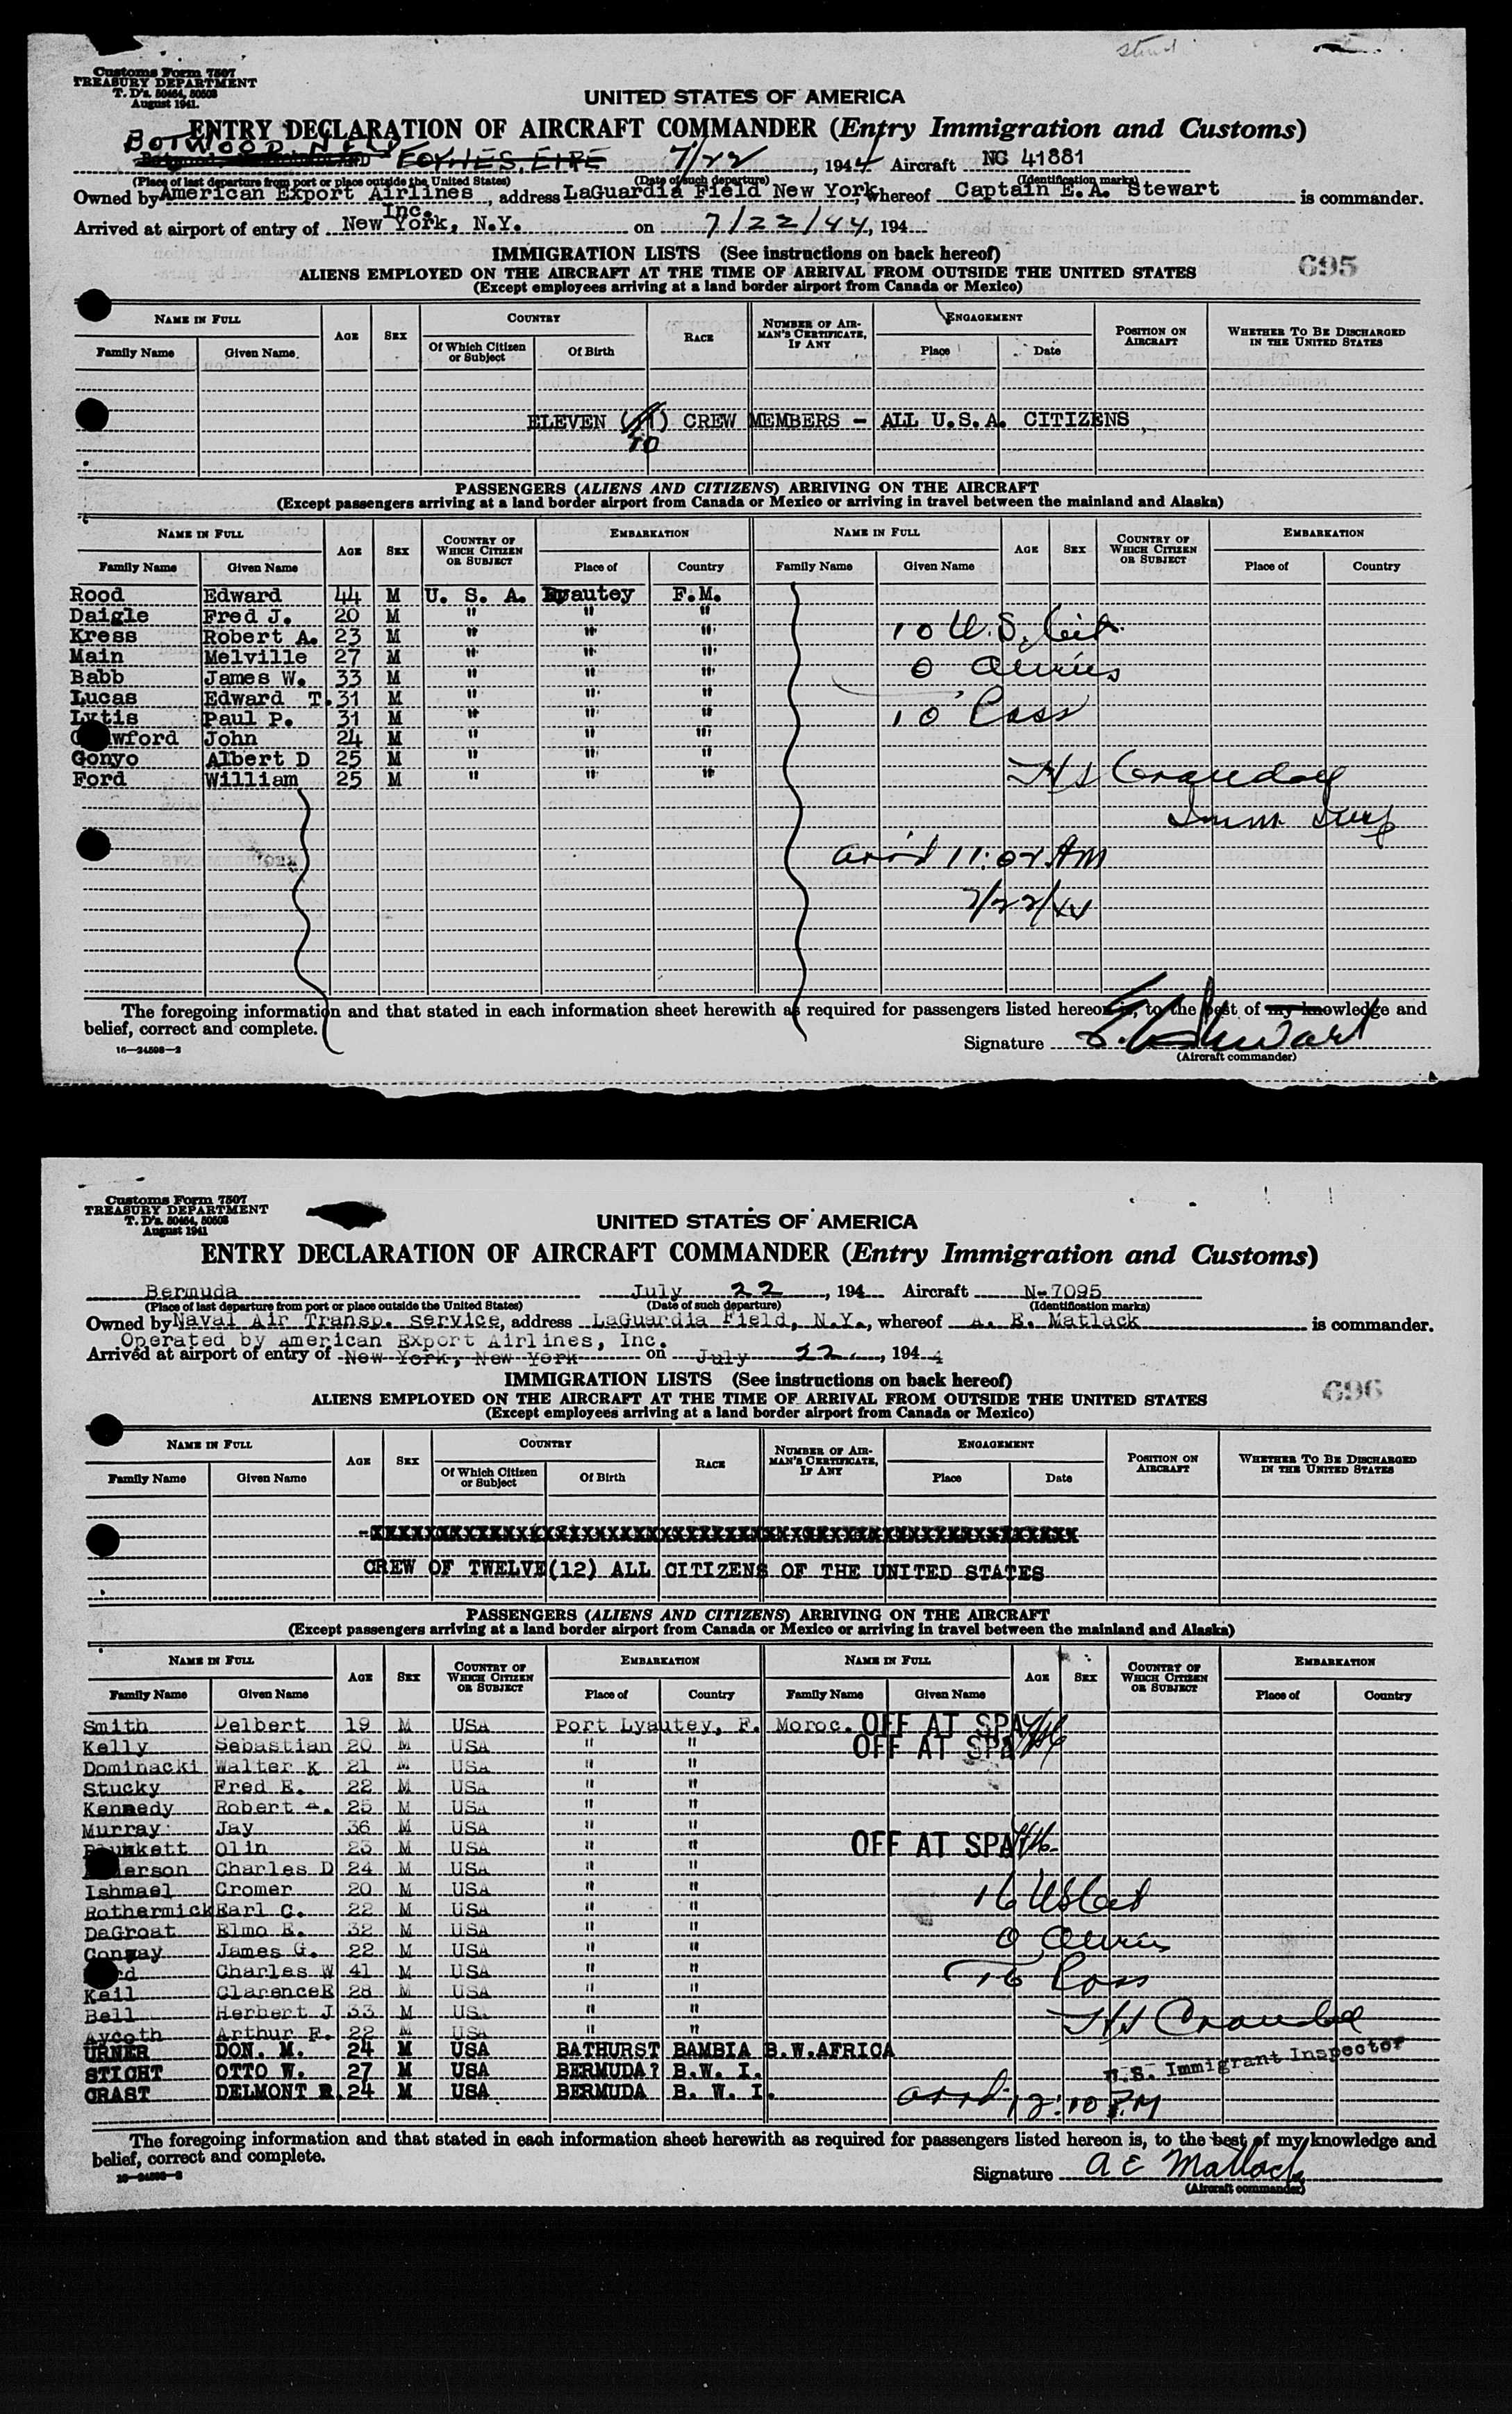 Customs Form 7507
TREASURY DEPARTMENT
T. D's. 50464, 50503
August 1941.
UNITED STATES OF AMERICA
ENTRY DECLARATION OF AIRCRAFT COMMANDER (Entry Immigration and Customs)
BOTWOOD NFLD FOYNES, EIRE 7/22, 1944 Aircraft NC 41881
(Place of last departure from port or place outside the United States) (Date of such departure) (Identification marks)
Owned by American Export Airlines, address LaGuardia Field New York, whereof Captain E.A. Stewart is commander.
Inc.
Arrived at airport of entry of New York, N.Y. on 7/22/44, 194
IMMIGRATION LISTS (See instructions on back hereof)
695
ALIENS EMPLOYED ON THE AIRCRAFT AT THE TIME OF ARRIVAL FROM OUTSIDE THE UNITED STATES
(Except employees arriving at a land border airport from Canada or Mexico)
NAME IN FULL AGE SEX COUNTRY RACE NUMBER OF AIRMAN'S CERTIFICATE, IF ANY ENGAGEMENT POSITION ON AIRCRAFT WHETHER TO BE DISCHARGED IN THE UNITED STATES
Family Name Given Name Of Which Citizen or Subject Of Birth Place Date
ELEVEN (11) CREW MEMBERS - ALL U.S.A. CITIZENS
10
PASSENGERS (ALIENS AND CITIZENS) ARRIVING ON THE AIRCRAFT
(Except passengers arriving at a land border airport from Canada or Mexico or arriving in travel between the mainland and Alaska)
NAME IN FULL AGE SEX COUNTRY OF WHICH CITIZEN OR SUBJECT EMBARKATION NAME IN FULL AGE SEX COUNTRY OF WHICH CITIZEN OR SUBJECT EMBARKATION
Family Name Given Name Place of Country Family Name Given Name Place of Country
Rood Edward 44 M U. S. A. Lyautey F.M.
Daigle Fred J. 20 M " " "
Kress Robert A. 23 M " " " 10 U.S. Cit
Main Melville 27 M " " "
Babb James W. 33 M " " " 0 Aliens
Lucas Edward T. 31 M " " "
Lytis Paul P. 31 M " " " 10 Pass
wford John 24 M " " "
Gonyo Albert D 25 M " " "
Ford William 25 M " " " Crandall
Imm Insp
arr'd 11:02 AM
7/22/44
The foregoing information and that stated in each information sheet herewith as required for passengers listed hereon is, to the best of my knowledge and
belief, correct and complete.
Signature E. A. Stewart
16-24508-2
(Aircraft commander)
Customs Form 7507
TREASURY DEPARTMENT
T. D's. 50464, 50503
August 1941
UNITED STATES OF AMERICA
ENTRY DECLARATION OF AIRCRAFT COMMANDER (Entry Immigration and Customs)
Bermuda July 22, 194 Aircraft N-7095
(Place of last departure from port or place outside the United States) (Date of such departure) (Identification marks)
Owned by Naval Air Transp. Service, address LaGuardia Field, N.Y., whereof A. E. Matlack is commander.
Operated by American Export Airlines, Inc.
Arrived at airport of entry of New York, New York on July 22, 1944
IMMIGRATION LISTS (See instructions on back hereof)
696
ALIENS EMPLOYED ON THE AIRCRAFT AT THE TIME OF ARRIVAL FROM OUTSIDE THE UNITED STATES
(Except employees arriving at a land border airport from Canada or Mexico)
NAME IN FULL AGE SEX COUNTRY RACE NUMBER OF AIRMAN'S CERTIFICATE, IF ANY ENGAGEMENT POSITION ON AIRCRAFT WHETHER TO BE DISCHARGED IN THE UNITED STATES
Family Name Given Name Of Which Citizen or Subject Of Birth Place Date
CREW OF TWELVE(12) ALL CITIZENS OF THE UNITED STATES
PASSENGERS (ALIENS AND CITIZENS) ARRIVING ON THE AIRCRAFT
(Except passengers arriving at a land border airport from Canada or Mexico or arriving in travel between the mainland and Alaska)
NAME IN FULL AGE SEX COUNTRY OF WHICH CITIZEN OR SUBJECT EMBARKATION NAME IN FULL AGE SEX COUNTRY OF WHICH CITIZEN OR SUBJECT EMBARKATION
Family Name Given Name Place of Country Family Name Given Name Place of Country
Smith Delbert 19 M USA Port Lyautey, F. Moroc. OFF AT SPA
Kelly Sebastian 20 M USA " " OFF AT SPA
Dominacki Walter K 21 M USA " "
Stucky Fred E. 22 M USA " "
Kennedy Robert A. 25 M USA " "
Murray Jay 36 M USA " "
Plunkett Olin 23 M USA " " OFF AT SPA
erson Charles D 24 M USA " "
Ishmael Cromer 20 M USA " " 16 US Cit
Rothermick Earl C. 22 M USA " "
DeGroat Elmo E. 32 M USA " " 0 Aliens
Conway James G. 22 M USA " "
rd Charles W 41 M USA " " 16 Pass
Keil Clarence E 28 M USA " "
Bell Herbert J 33 M USA " " Crandall
Aycoth Arthur F. 22 M USA " "
URNER DON. M. 24 M USA BATHURST BAMBIA B.W.AFRICA
STICHT OTTO W. 27 M USA BERMUDA? B.W. I. U.S. Immigrant Inspector
GRAST DELMONT R. 24 M USA BERMUDA B. W. I. arrd. 12:10 P.M
The foregoing information and that stated in each information sheet herewith as required for passengers listed hereon is, to the best of my knowledge and
belief, correct and complete.
Signature A E Matlack
16-24508-2
(Aircraft commander)